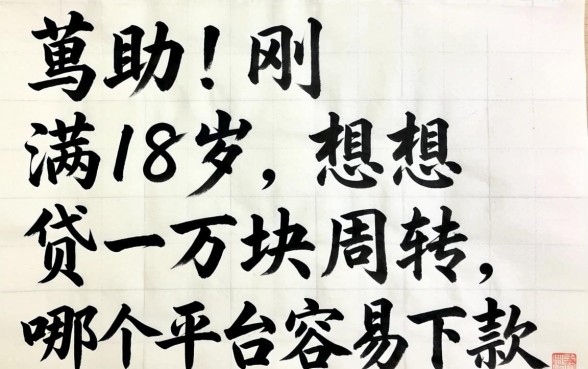 萬助！刚
满18岁，想想
贷一万块周转，
哪个平台容易下款